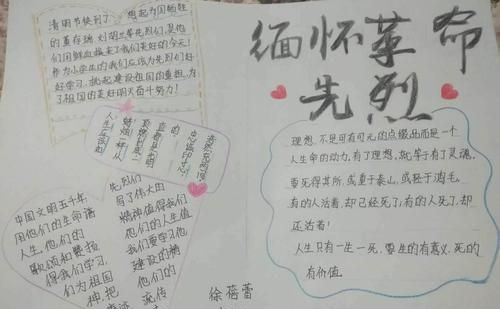 缅怀革命
先烈
清明节快到了,想起为国牺牲
的董存瑞、刘胡兰等先烈们,是他
们用鲜血换来了我们美好的今天!
作为小学生的我们应该为先烈们好
好学习,挑起建设祖国的重担,为
了祖国的美好明天奋斗努力!
人生应该如
蜡烛一样从
顶燃到底,一
直都是光明
的。
忠诚印寸心,
浩然充两间。
理想,不是可有可无的点缀品而是一个
人生命的动力,有了理想,就等于有了灵魂,
要死得其所,或重于泰山,或轻于鸿毛。
有的人活着,却已经死了;有的人死了,却
还活着!
人生只有一生一死,要生的有意义,死的
有价值。
中国文明五千年,
用他们的生命谱
人生,他们的
歌颂和赞扬
得我们学习,
们为祖国
神,把
先烈们
写了伟大的
精神值得我们
他们的人生值
我们要学习他
建设的精
他们的
流传
徐蓓蕾